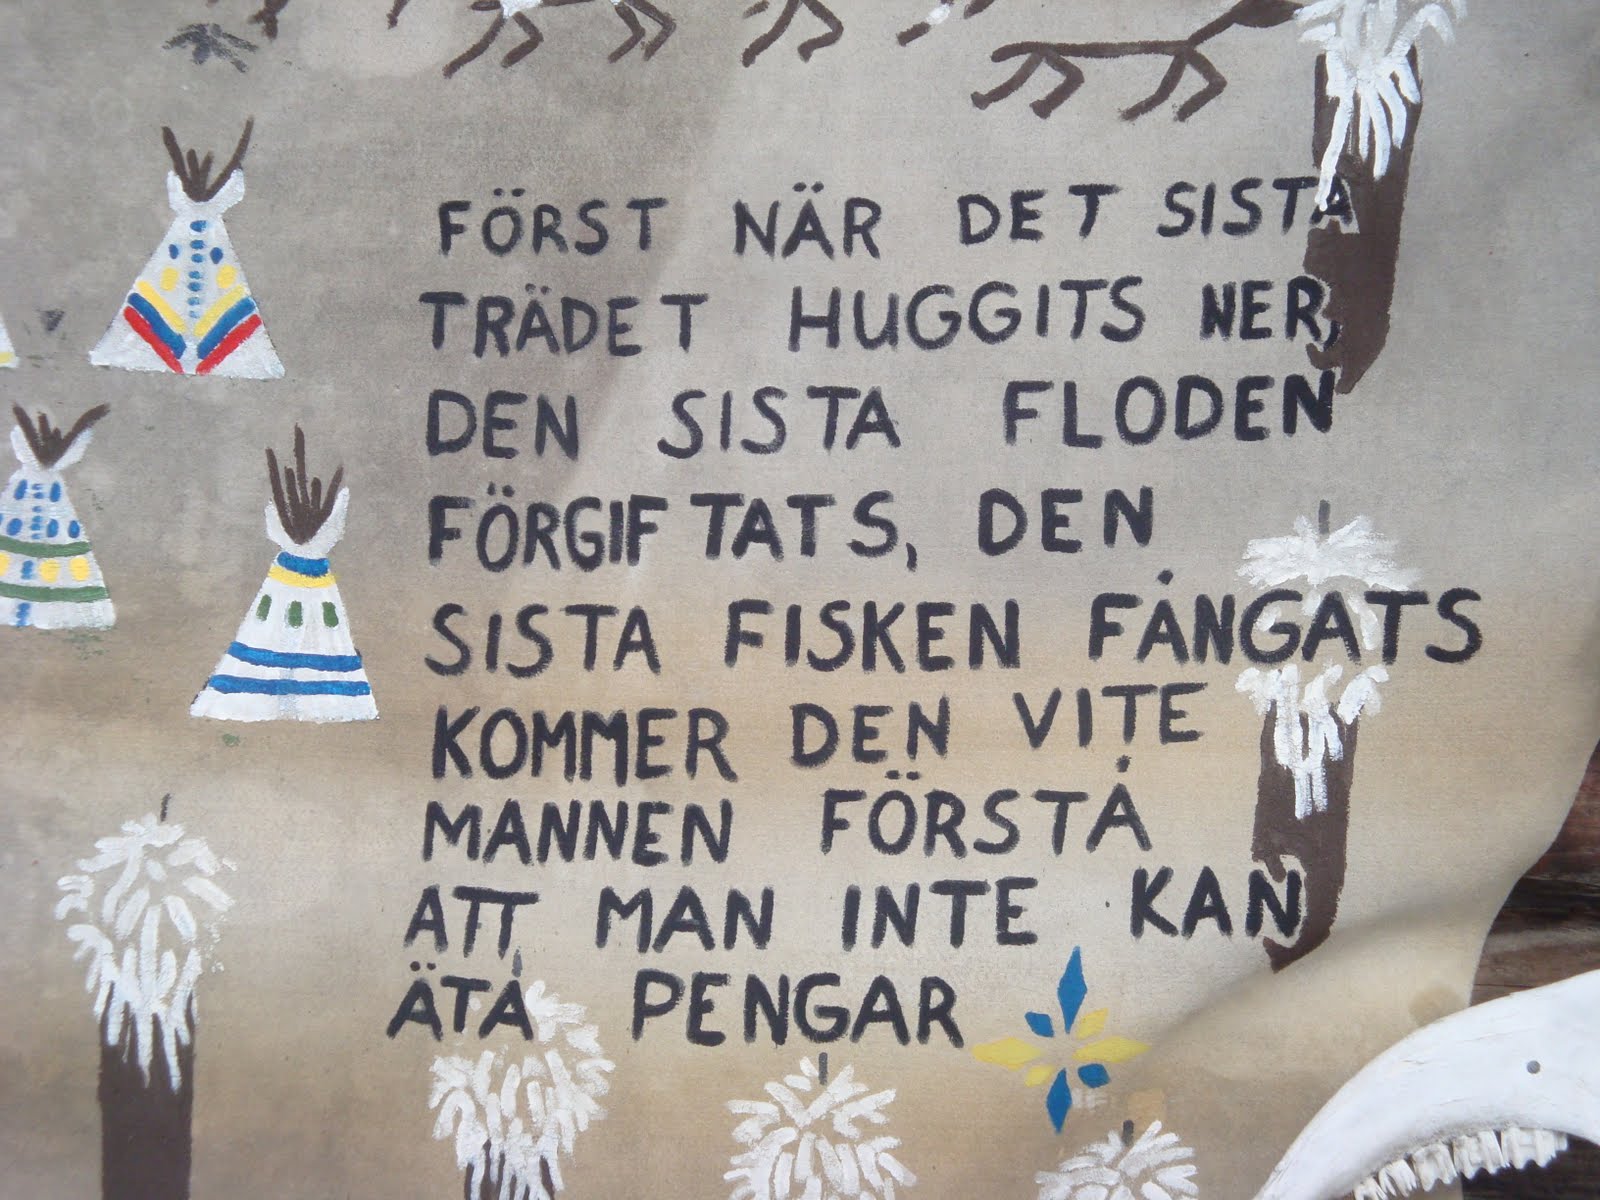 FÖRST NÄR DET SISTA
TRÄDET HUGGITS NER,
DEN SISTA FLODEN
FÖRGIFTATS, DEN
SISTA FISKEN FÅNGATS
KOMMER DEN VITE
MANNEN FÖRSTÅ
ATT MAN INTE KAN
ÄTA PENGAR